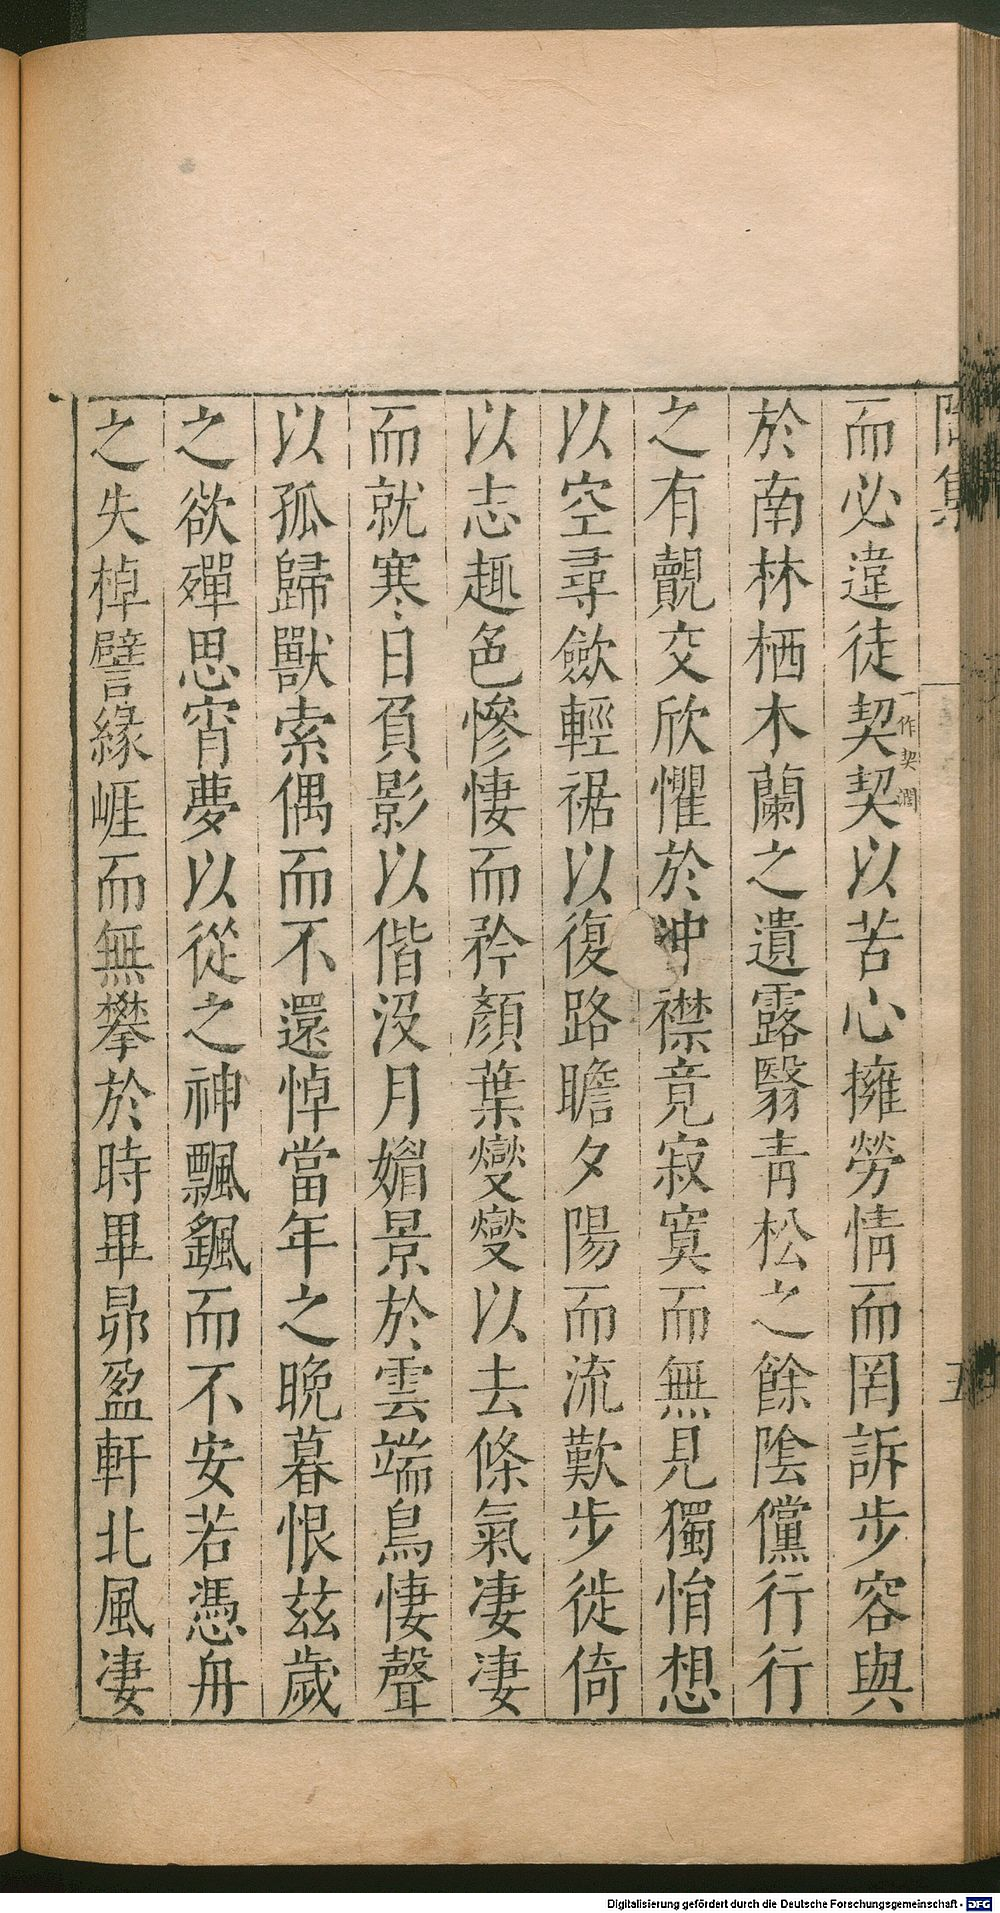 集
五
而必違徒契契一作契濶以苦心擁勞情而罔訴步容與
於南林栖木蘭之遺露翳青松之餘陰儻行行
之有覿交欣懼於冲襟竟寂寞而無見獨悁想
以空尋歛輕裾以復路瞻夕陽而流歎步徙倚
以志趣色慘悽而矜顏葉燮燮以去條氣凄凄
而就寒日負影以偕没月媚景於雲端鳥悽聲
以孤歸獸索偶而不還悼當年之晚暮恨兹歲
之欲殫思宵夢以從之神飄颻而不安若憑舟
之失棹譬緣崕而無攀於時畢昴盈軒北風凄
Digitalisierung gefördert durch die Deutsche Forschungsgemeinschaft - DFG